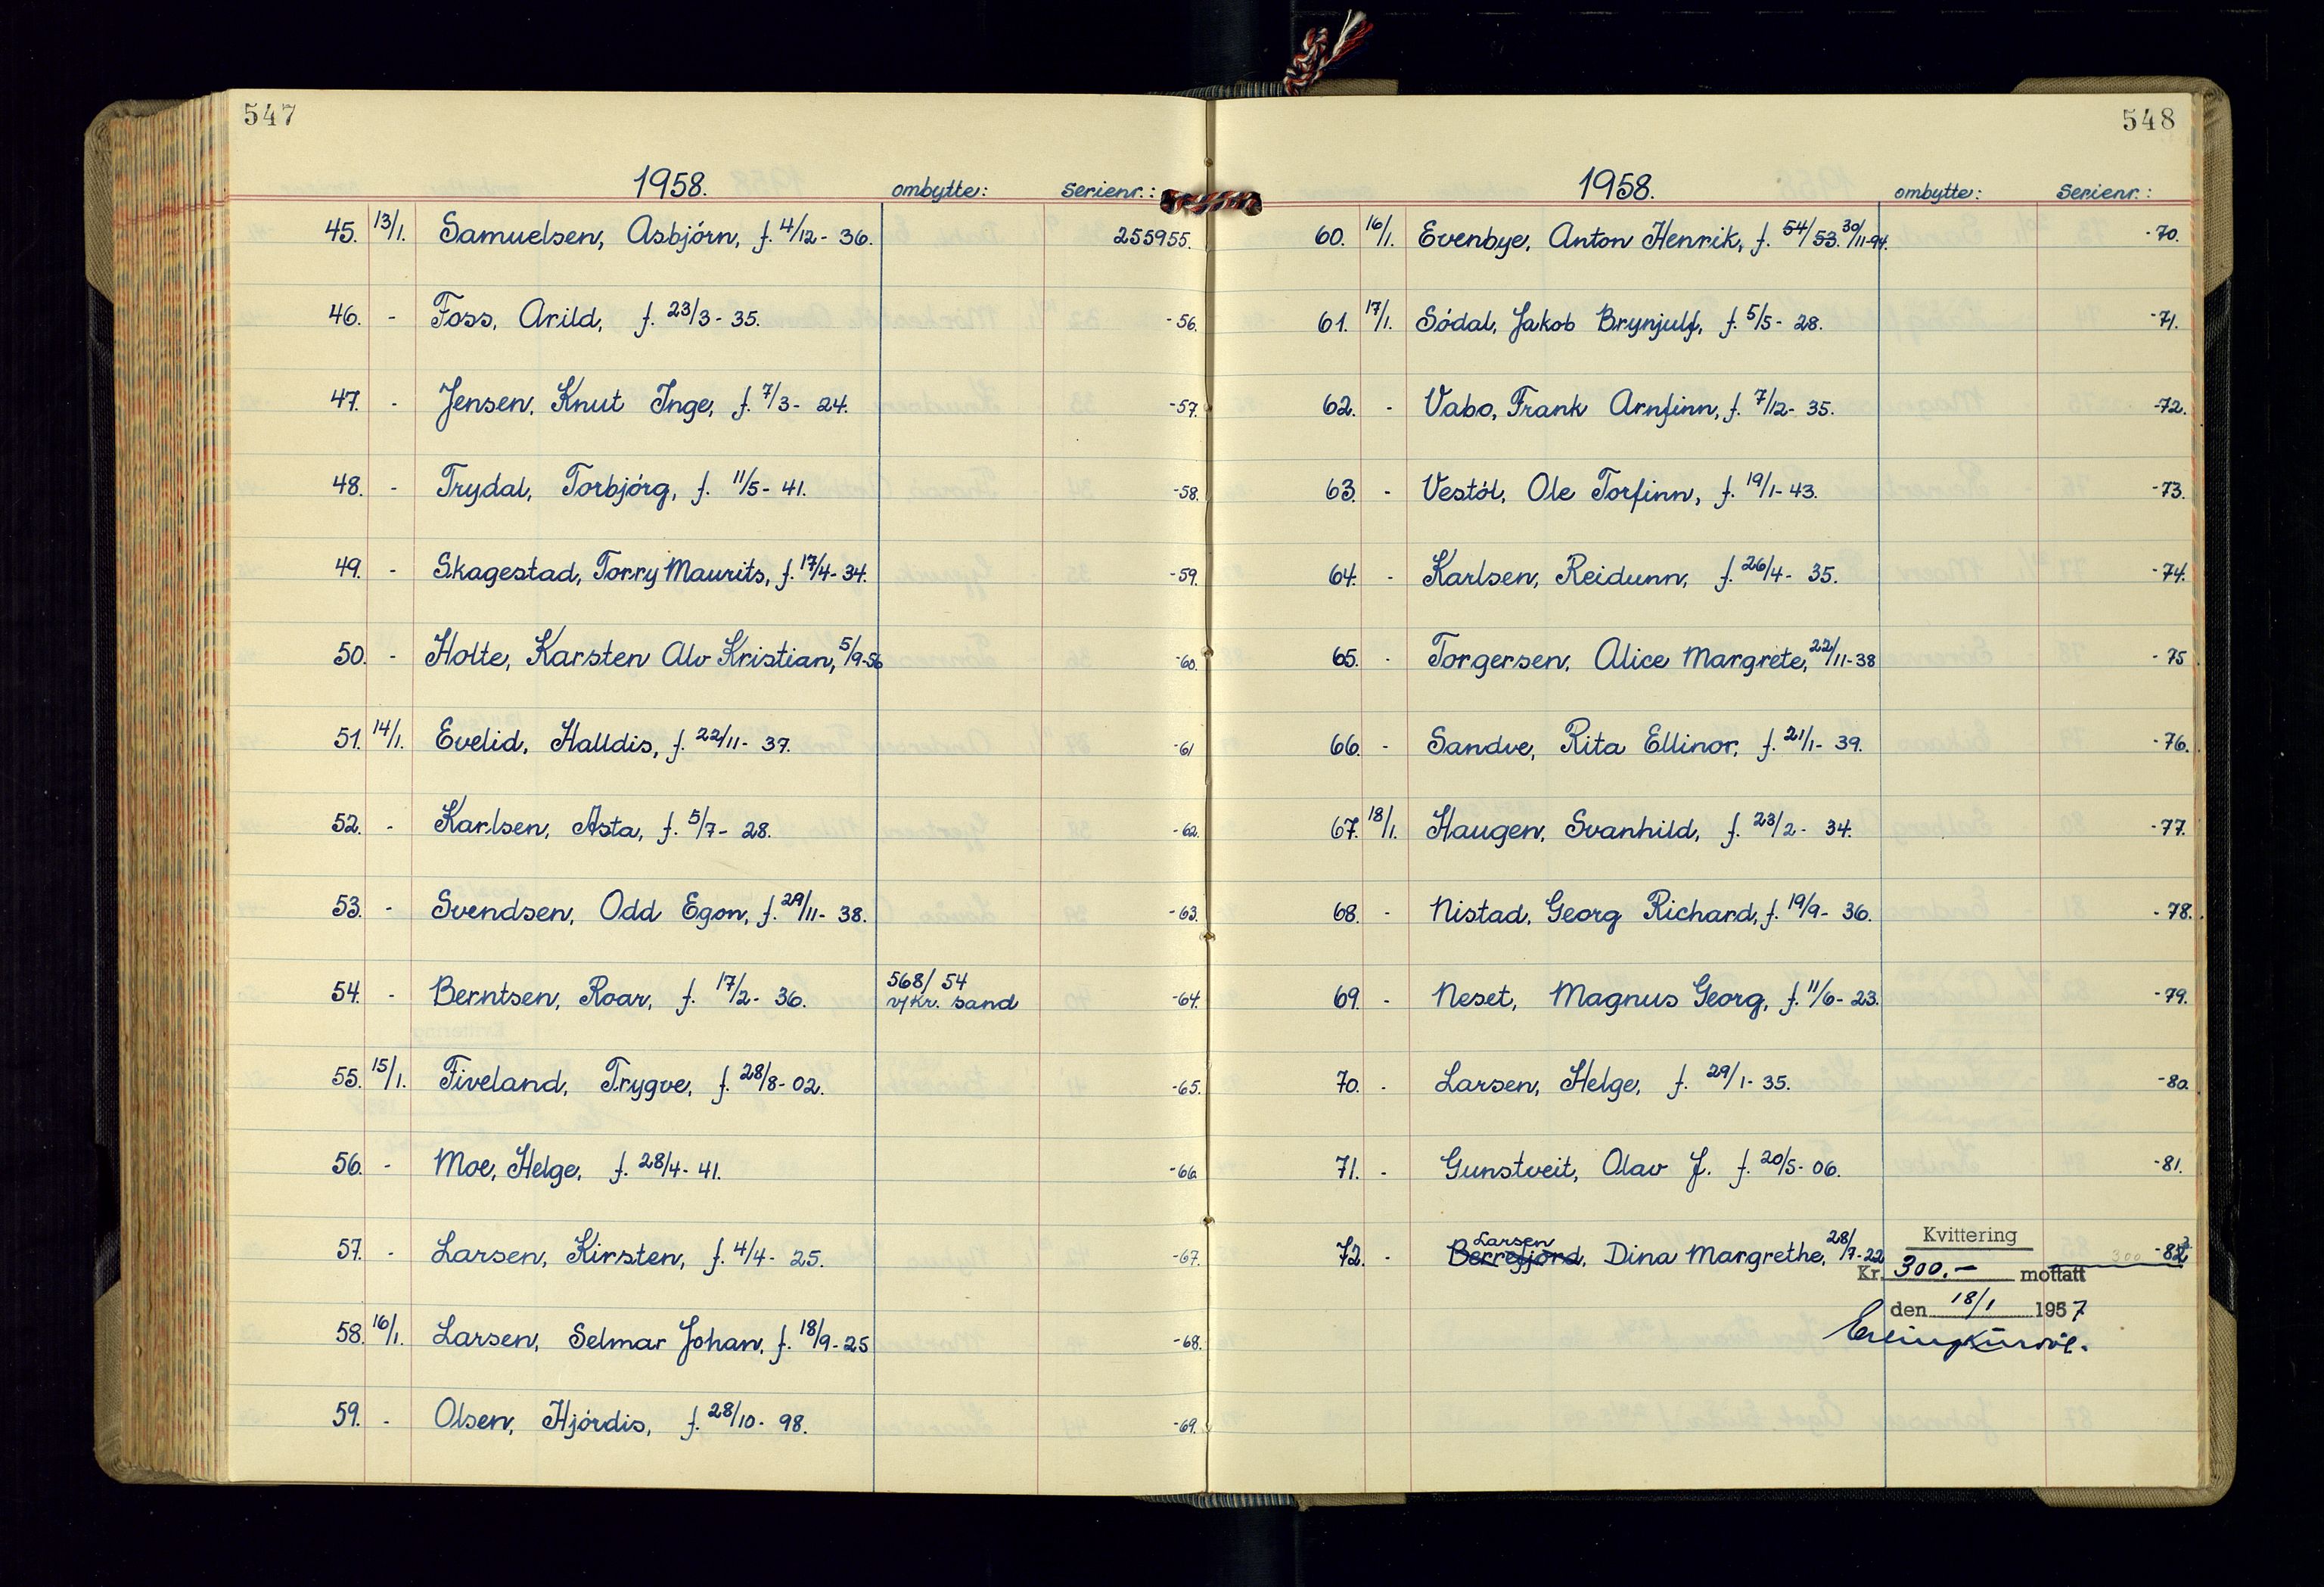 547
1958. ombytte: Serienr.:
45. 13/1. Samuelsen, Asbjörn, f. 4/12- 36. 255955.
46. - Foss, Arild, f. 23/3- 35. -56.
47. - Jensen, Knut Inge, f. 7/3- 24. -57.
48. - Trydal, Torbjórg, f. 11/5- 41. -58.
49. - Skagestad, Torry Maurits, f. 17/4- 34. -59.
50. - Holte, Karsten Alv Kristian, 5/9-56 -60.
51. 14/1. Evelid, Halldis, f. 22/11- 37. -61
52. - Karlsen, Asta, f. 5/7- 28. -62.
53. - Svendsen, Odd Egon, f. 29/11- 38. -63.
54. - Berntsen, Roar, f. 17/2- 36. 568/54 -64.
v/Kr. sand
55. 15/1. Fiveland, Trygve, f. 28/8-02. -65.
56. - Moe, Helge, f. 28/4- 41. -66.
57. - Larsen, Kirsten, f. 4/4- 25. -67.
58. 16/1. Larsen, Selmar Johan, f. 18/9-25 -68.
59. - Olsen, Hjórdis, f. 28/10- 98. -69.
548
1958. ombytte: Serienr.:
60. 16/1. Evenbye, Anton Henrik, f. 54/53. 30/11-94. -70.
61. 17/1. Södal, Jakob Brynjulf, f. 5/5- 28. -71.
62. - Vabo, Frank Arnfinn, f. 7/12- 35. -72.
63. - Vestól, Ole Torfinn, f. 19/1-43. -73.
64. - Karlsen, Reidunn, f. 26/4- 35. -74.
65. - Torgersen, Alice Margrete, 22/11-38 -75
66. - Sandve, Rita Ellinor, f. 21/1- 39. -76.
67. 18/1. Haugen, Svanhild, f. 23/2- 34. -77.
68. - Nistad, Georg Richard, f. 19/9- 36. -78.
69. - Neset, Magnus Georg, f. 11/6- 23. -79.
70. - Larsen, Helge, f. 29/1-35. -80.
71. - Gunstveit, Olav J. f. 20/5-06. -81.
Larsen
72. - Berrefjord, Dina Margrethe, 28/7-22 300 -82
Kvittering
Kr. 300.- mottatt
den 18/1 1957